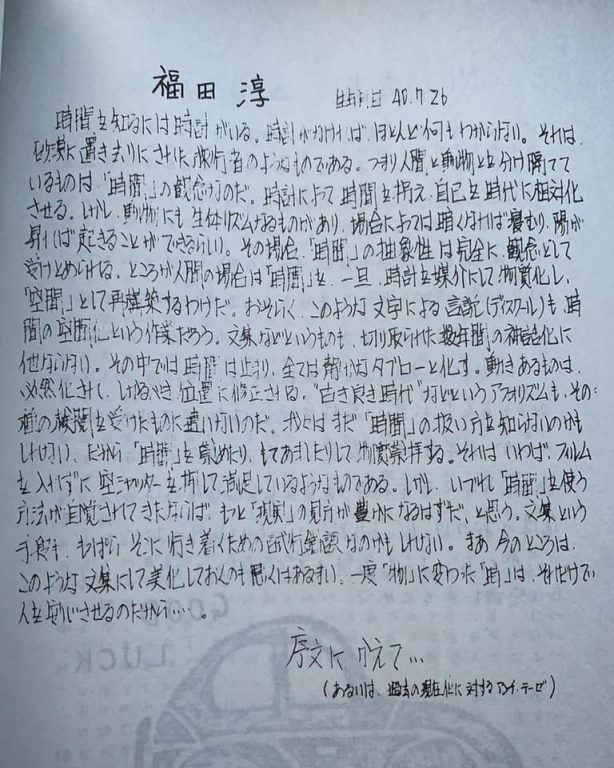 福田 淳 生年月日 40.7.26
時間を知るには時計がいる。時計がなければ、ほとんど何もわからない。それは、
砂漠に置き去りにされた旅行者のようなものである。つまり人間と動物とを分け隔てて
いるものは、「時間」の観念なのだ。時計によって時間を捕え、自己を時代に相対化
させる。しかし、動物にも生体リズムなるものがあり、場合によっては暗くなれば寝むり、陽が
昇れば起きることができるらしい。その場合、「時間」の抽象性は完全に、観念として
受けとめられる。ところが人間の場合は「時間」を、一旦、時計を媒介にして物質化し、
「空間」として再構築するわけだ。おそらく、このような文字による言説(ディスクール)も時
間の空間化という作業だろう。文集などというものも、切り取られた数年間の神話化に
他ならない。その中では時間は止まり、全ては静かなタブローと化す。動きあるものは、
必然化されて、しかるべき位置に修正される。“古き良き時代”などというアフォリズムも、その
種の検閲を受けたものに違いないのだ。我々はまだ「時間」の扱い方を知らないのかも
しれない、だから「時間」を崇めたり、もてあましたりして物質崇拝する。それは、いわば、フィルム
を入れずに空シャッターを押して満足しているようなものである。しかし、いづれ「時間」を使う
方法が自覚されてきたならば、もっと「現実」の見方が豊かになるはずだ、と思う。文集という
手段も、もっぱら そこに行き着くための試行錯誤なのかもしれない。まあ 今のところは、
このような文集にして美化しておくのも悪くはあるまい。一度「物」に変わった「時」は、それだけで
人を安心させるのだから……。
序文に かえて…
(あるいは、過去の現在化に対するアンチ・テーゼ)
GOOD
LUCK